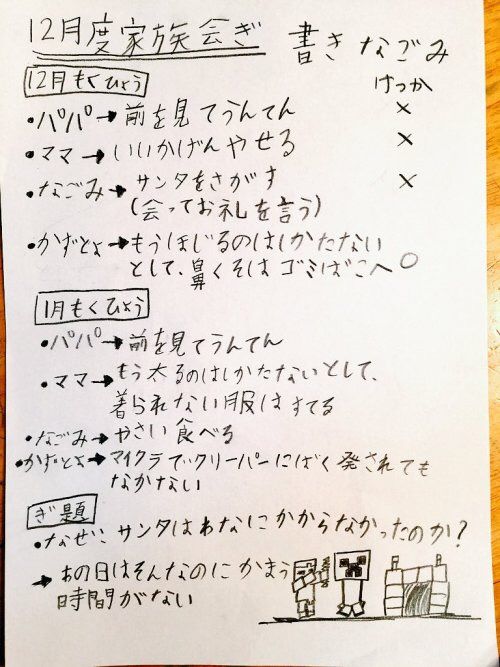 12月度家族会ぎ 書き なごみ
12月もくひょう けっか
・パパ→前を見てうんてん ×
・ママ→いいかげんやせる ×
・なごみ→サンタをさがす ×
(会ってお礼を言う)
・かずとよ→もうほじるのはしかたない
として、鼻くそはゴミばこへ ○
1月もくひょう
・パパ→前を見てうんてん
・ママ→もう太るのはしかたないとして、
着られない服はすてる
・なごみ→やさい食べる
・かずとよ→マイクラでクリーパーにばく発されても
なかない
ぎ題
・なぜ、サンタはわなにかからなかったのか?
→あの日はそんなのにかまう
時間がない